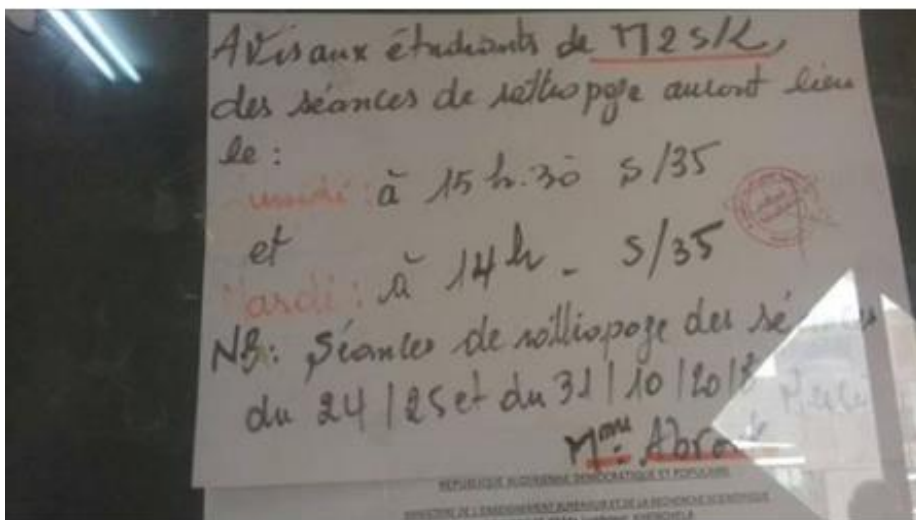 Avis aux étudiants de M2 S/L,
des séances de rattrapage auront lieu
le :
Lundi : à 15 h:30 S/35
et
Mardi : à 14 h - S/35
NB : Séances de rattrapage des
du 24 / 25 et du 31 / 10 /
Mme
REPUBLIQUE ALGERIENNE DEMOCRATIQUE ET POPULAIRE
MINISTERE DE L'ENSEIGNEMENT SUPERIEUR ET DE LA RECHERCHE SCIENTIFIQUE
KHENCHELA